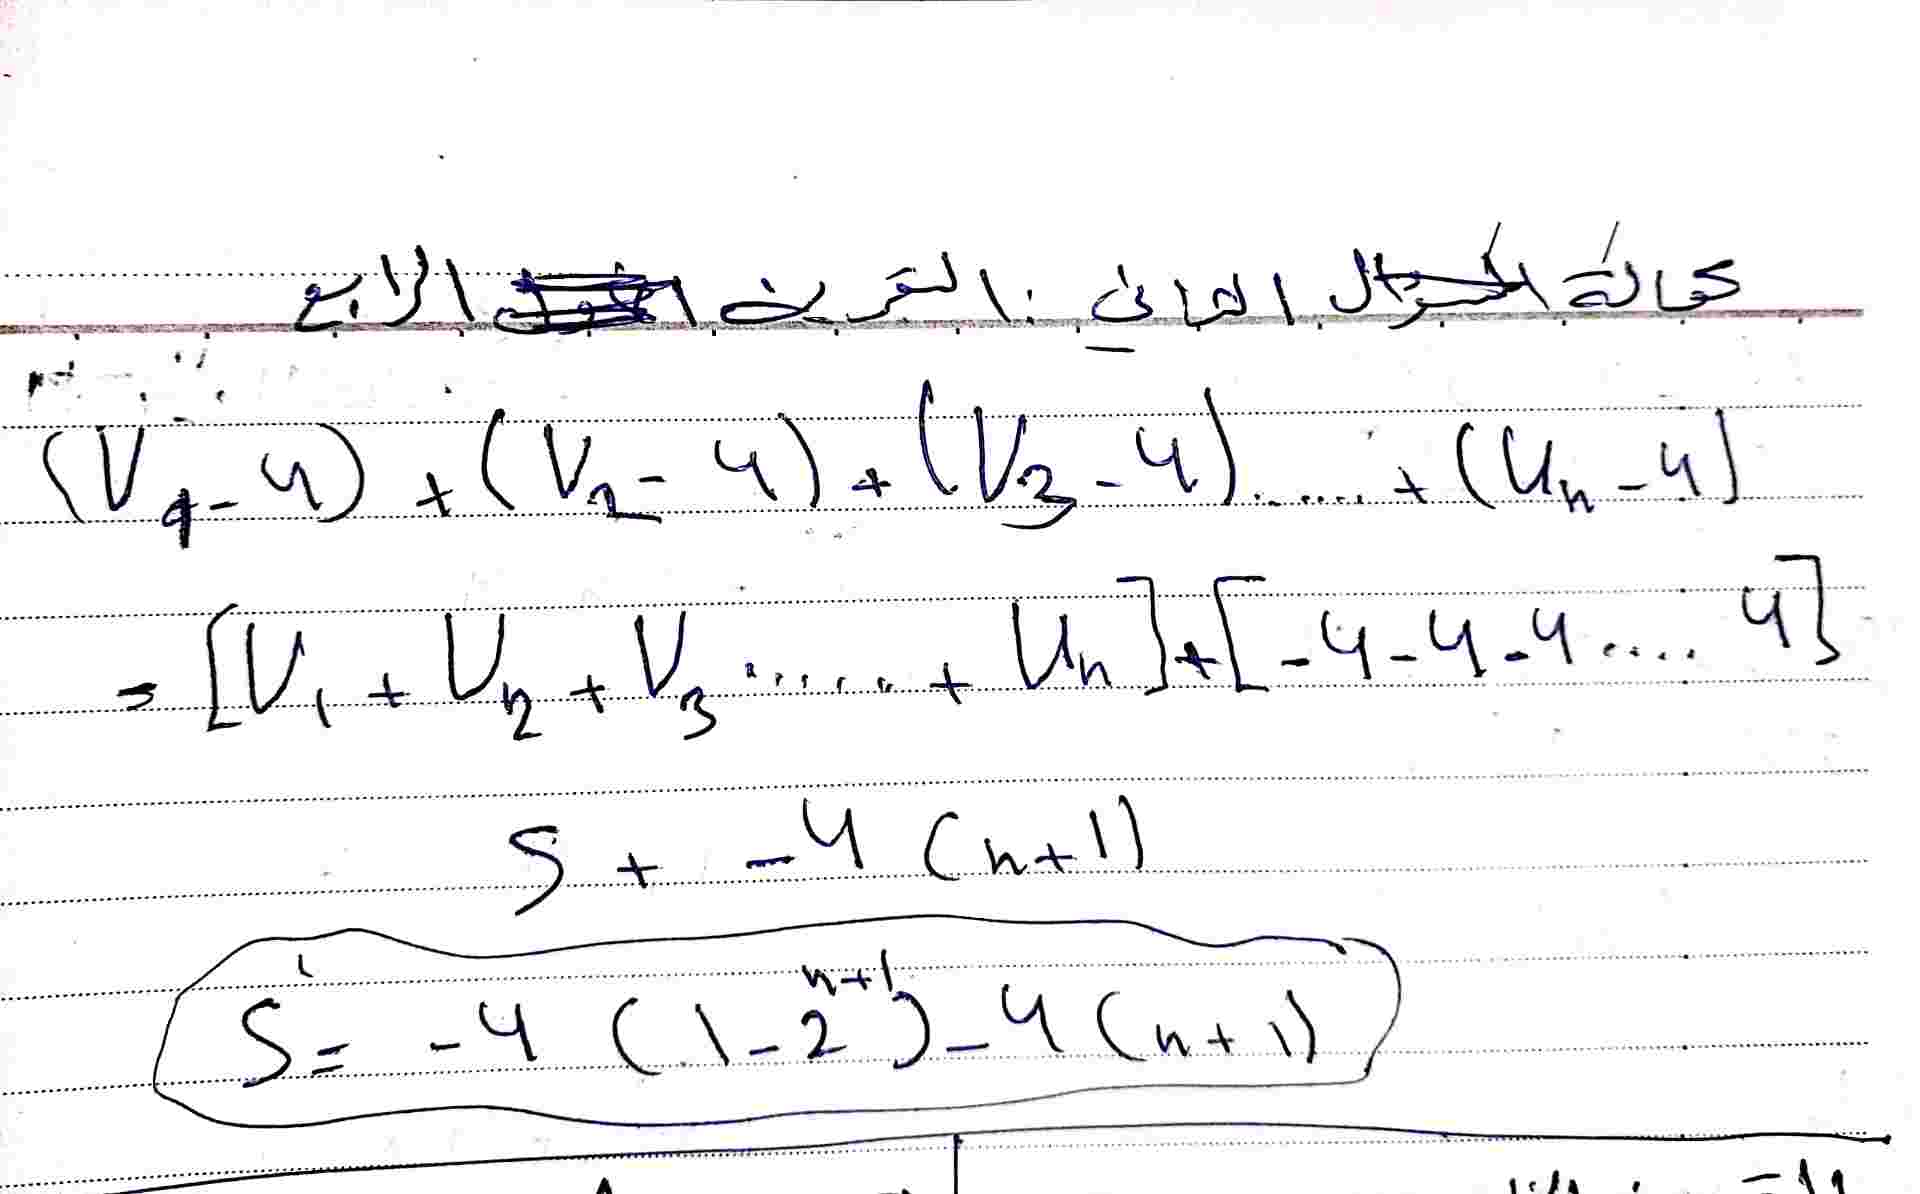 كمالة السؤال الثاني : التمرين الرابع
(V1 - 4) + (V2 - 4) + (V3 - 4) ...... + (Un - 4)
= [V1 + V2 + V3 ...... + Un] + [-4 - 4 - 4 .... 4]
S + -4 (n+1)
S' = -4 (1 - 2^{n+1}) - 4 (n+1)